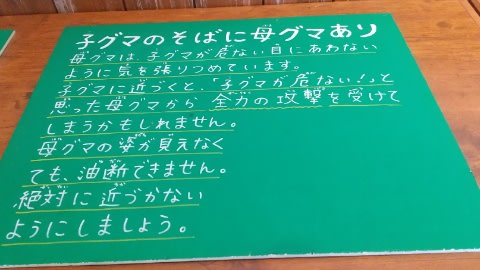 子グマのそばに母グマあり
母グマは、子グマが危ない目にあわない
ように気を張りつめています。
子グマに近づくと、「子グマが危ない!」と
思った母グマから 全力の攻撃を受けて
しまうかもしれません。
母グマの姿が見えなく
ても、油断できません。
絶対に近づかない
ようにしましょう。